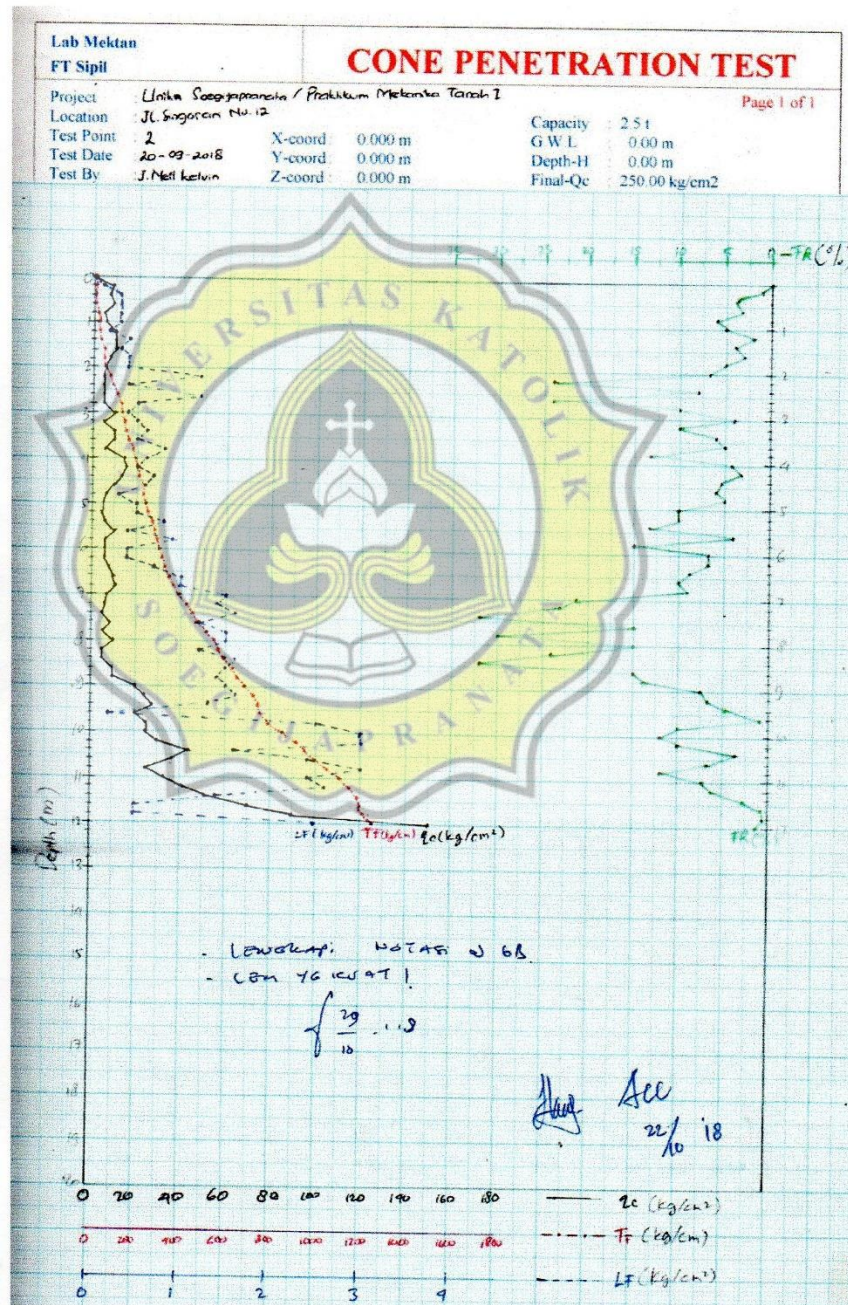 Lab Mektan
FT Sipil
CONE PENETRATION TEST
Page 1 of 1
Project : Unika Soegijapranata / Praktikum Mekanika Tanah I
Location : JL. Singosari No. 12
Test Point : 2
Test Date : 20-09-2018
Test By : J. Neil Kelvin
X-coord : 0.000 m
Y-coord : 0.000 m
Z-coord : 0.000 m
Capacity : 2.5 t
G W L : 0.00 m
Depth-H : 0.00 m
Final-Qc : 250.00 kg/cm2
FR (%)
UNIVERSITAS KATOLIK
SOEGIJAPRANATA
0
1
2
3
4
5
6
7
8
9
10
11
13
15
16
17
18
Depth (m)
LF (kg/cm²) Tf (kg/cm) qc (kg/cm²)
- LENGKAPI NOTASI
- LEM YG KUAT !
29
10
Acc
22/10 '18
0 20 40 60 80 100 120 140 160 180
qc (kg/cm²)
0 200 400 600 800 1000 1200 1400 1600 1800
TF (kg/cm)
LF (kg/cm²)
0 1 2 3 4